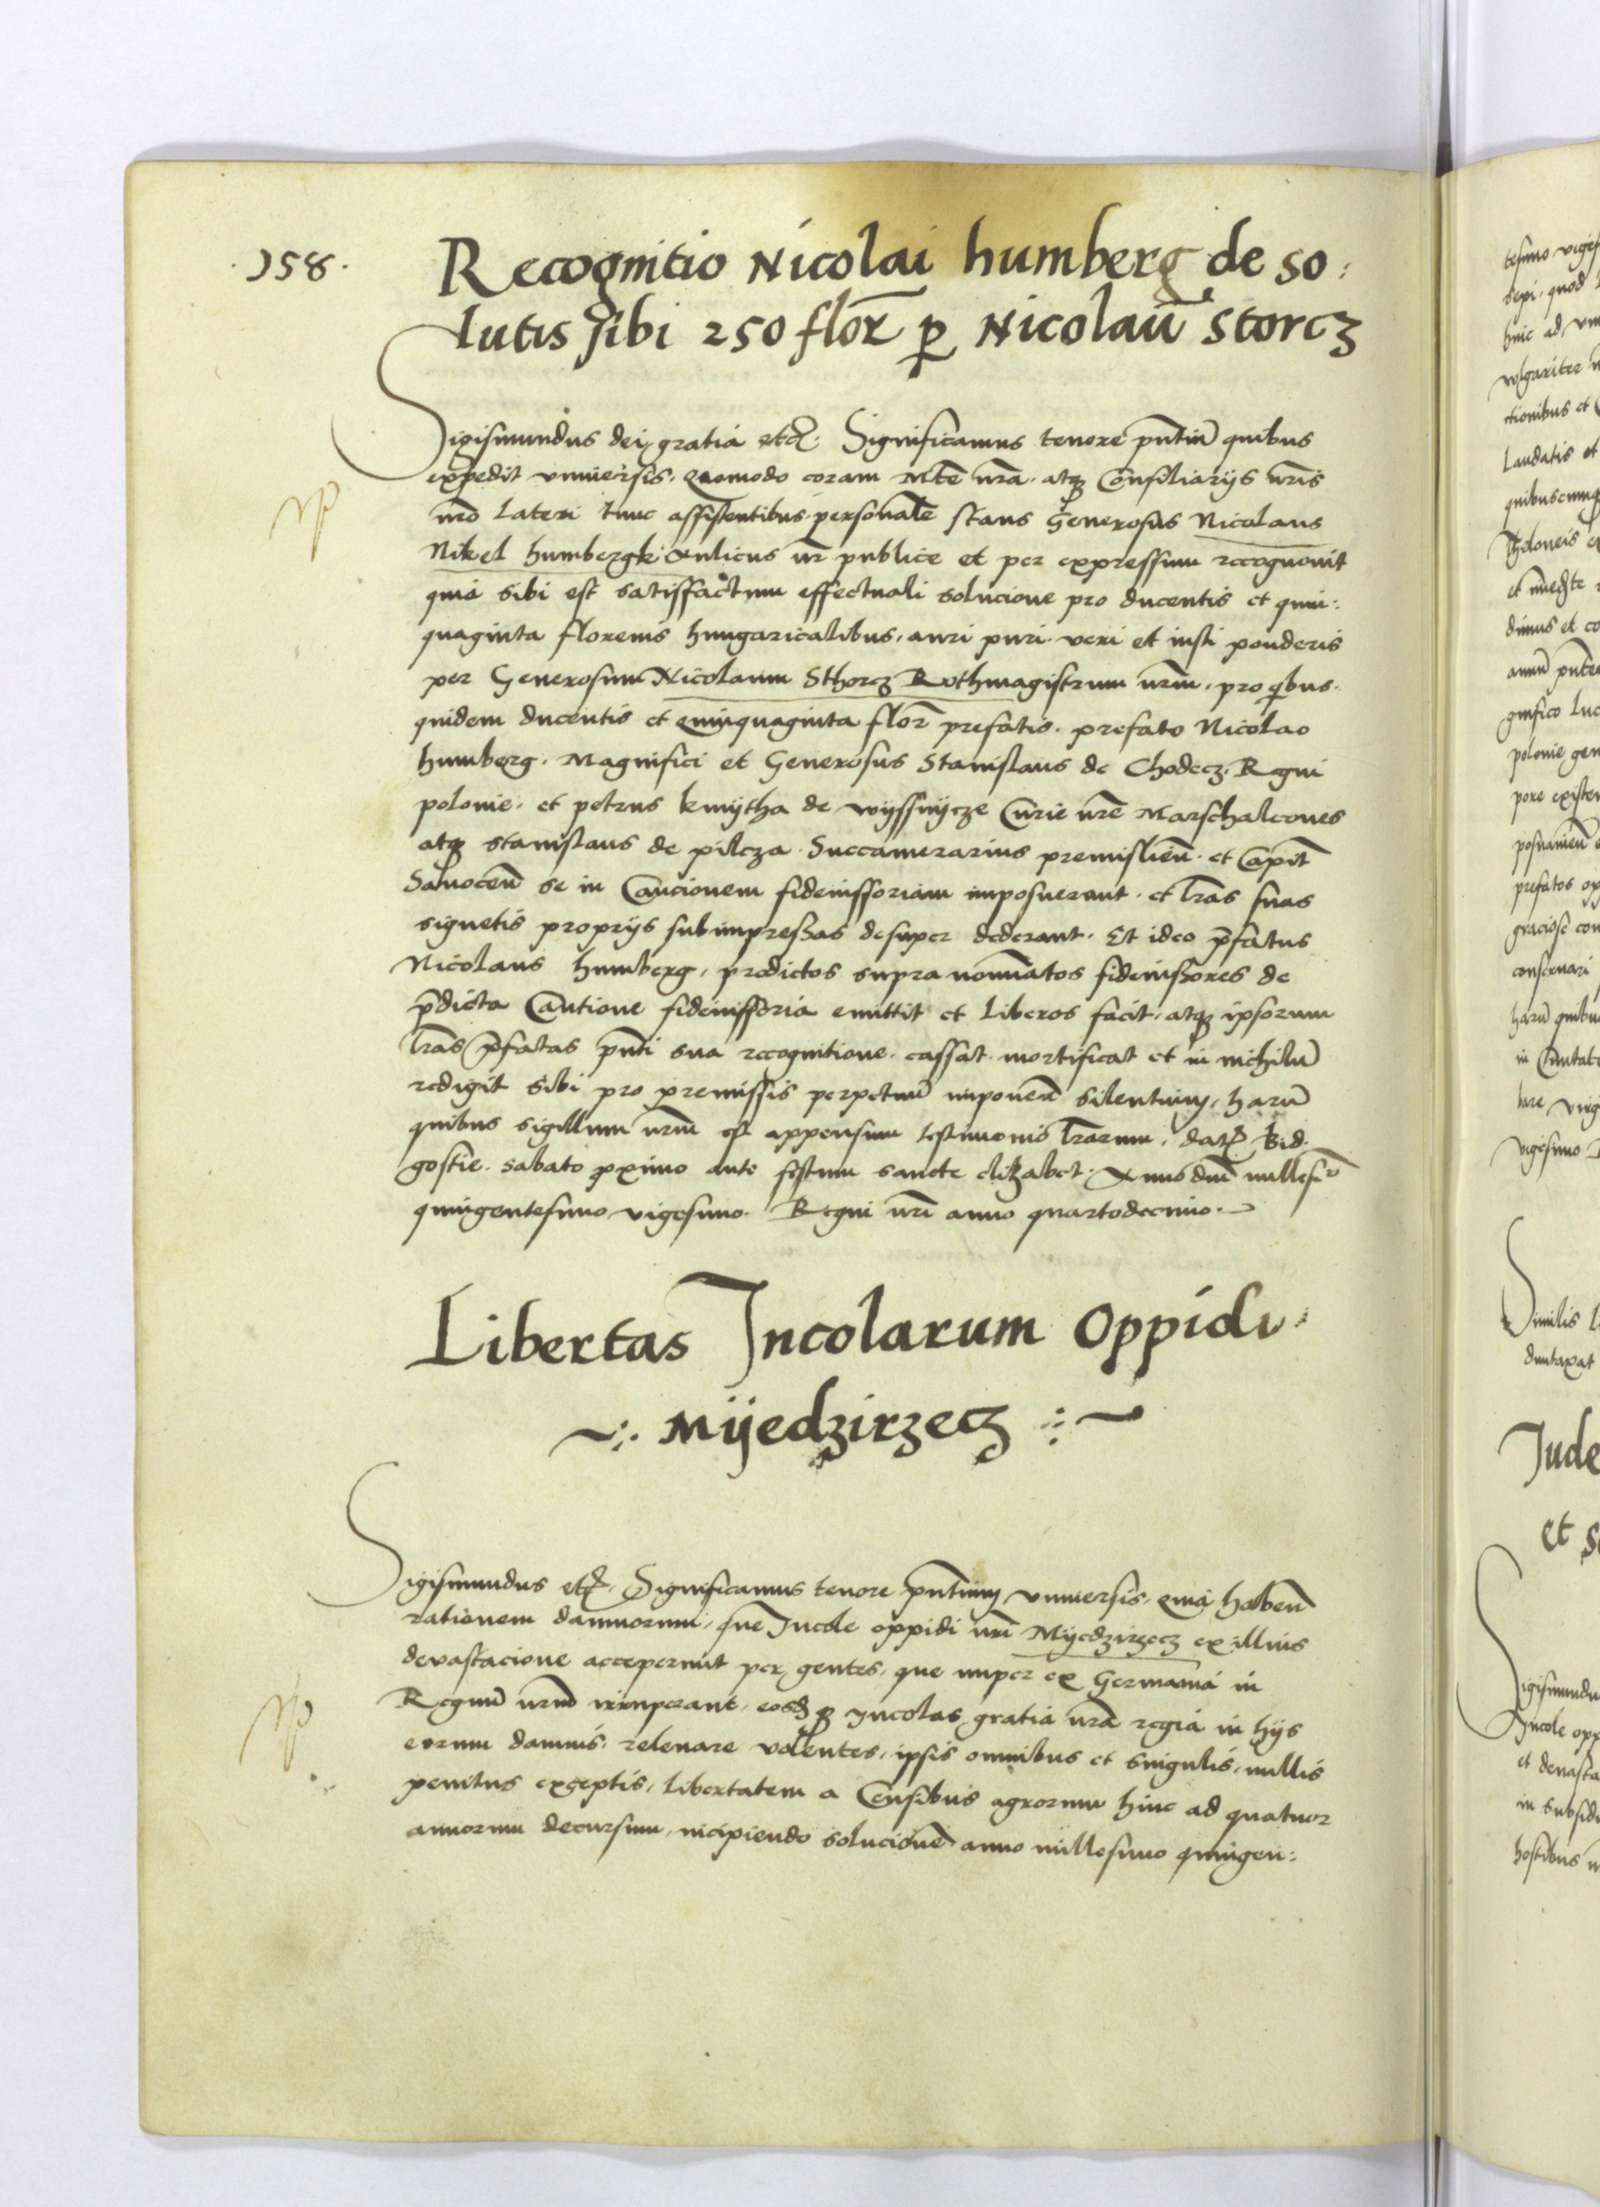 .158.
Recognitio Nicolai humberg de so:
lutis sibi 250 flor̄ ꝑ Nicolaū Storcz
Sigismundus dei gratia etcꝫ. Significamus tenore pn̄tiū quibus
expedit vniuersis. Quomodo coram Mte nr̄a. atqꝫ Consiliarijs nr̄is
nr̄o Lateri tunc assistentibus personal̄r stans Generosus Nicolaus
Nikel humbergk Aulicus nr̄ publice et per expressum recognouit
quia sibi est satisfactum effectuali solucione pro ducentis et quin:
quaginta florenis hungaricalibus, auri puri veri et iusti ponderis
per Generosum Nicolaum Sthorcz Rothmagistrum nrm̄, pro qibus
quidem ducentis et Quinquaginta flor̄ prefatis. prefato Nicolao
humberg. Magnifici et Generosus Stanislaus de Chodecz. Regni
polonie. et petrus kmytha de wyssnycze Curie nr̄e Marschalcones
atqꝫ stanislaus de pilcza Succamerarius premislien̄. et Capit̄
Sanocen̄ se in Caucionem fideiussoriam imposuerant. et Lr̄as suas
signetis proprijs subimpressas desuper dederant. Et ideo p̄fatus
Nicolaus humberg, predictos supra nomīatos fideiussores de
p̄dicta Cautione fideiussoria emittit et Liberos facit, atqꝫ ipsorum
Lr̄as p̄fatas pn̄ti sua recognitione cassat mortificat et in nichilū
redigit sibi pro premissis perpetuū imponen̄ silentium, harū
quibus sigillum nrm̄ est appensum testimonio Lr̄arum. datꝫ Bid
gostie. sabato ꝓximo ante festum sancte elizabet. Anno dnī millesīo
quingentesimo vigesimo. Regni nrī anno quartodecimo.
Libertas Incolarum Oppidi
Mÿedzirzecz
Sigismundus etcꝫ. Significamus tenore pn̄tium vniuersis. Quia haben̄
rationem damnorum, que Incole oppidi nrī Myedzirzecz ex illius
devastacione acceperunt per gentes, que nuper ex Germania in
Regnū nrm̄ irruperant, eosdqꝫ Incolas gratia nr̄a regia in hijs
eorum damnis. releuare volentes, ipsis omnibus et singulis, nullis
penitus exceptis, Libertatem a Censibus agrorum hinc ad quatuor
annorum decursum, incipiendo solucionē anno millesimo quingen: